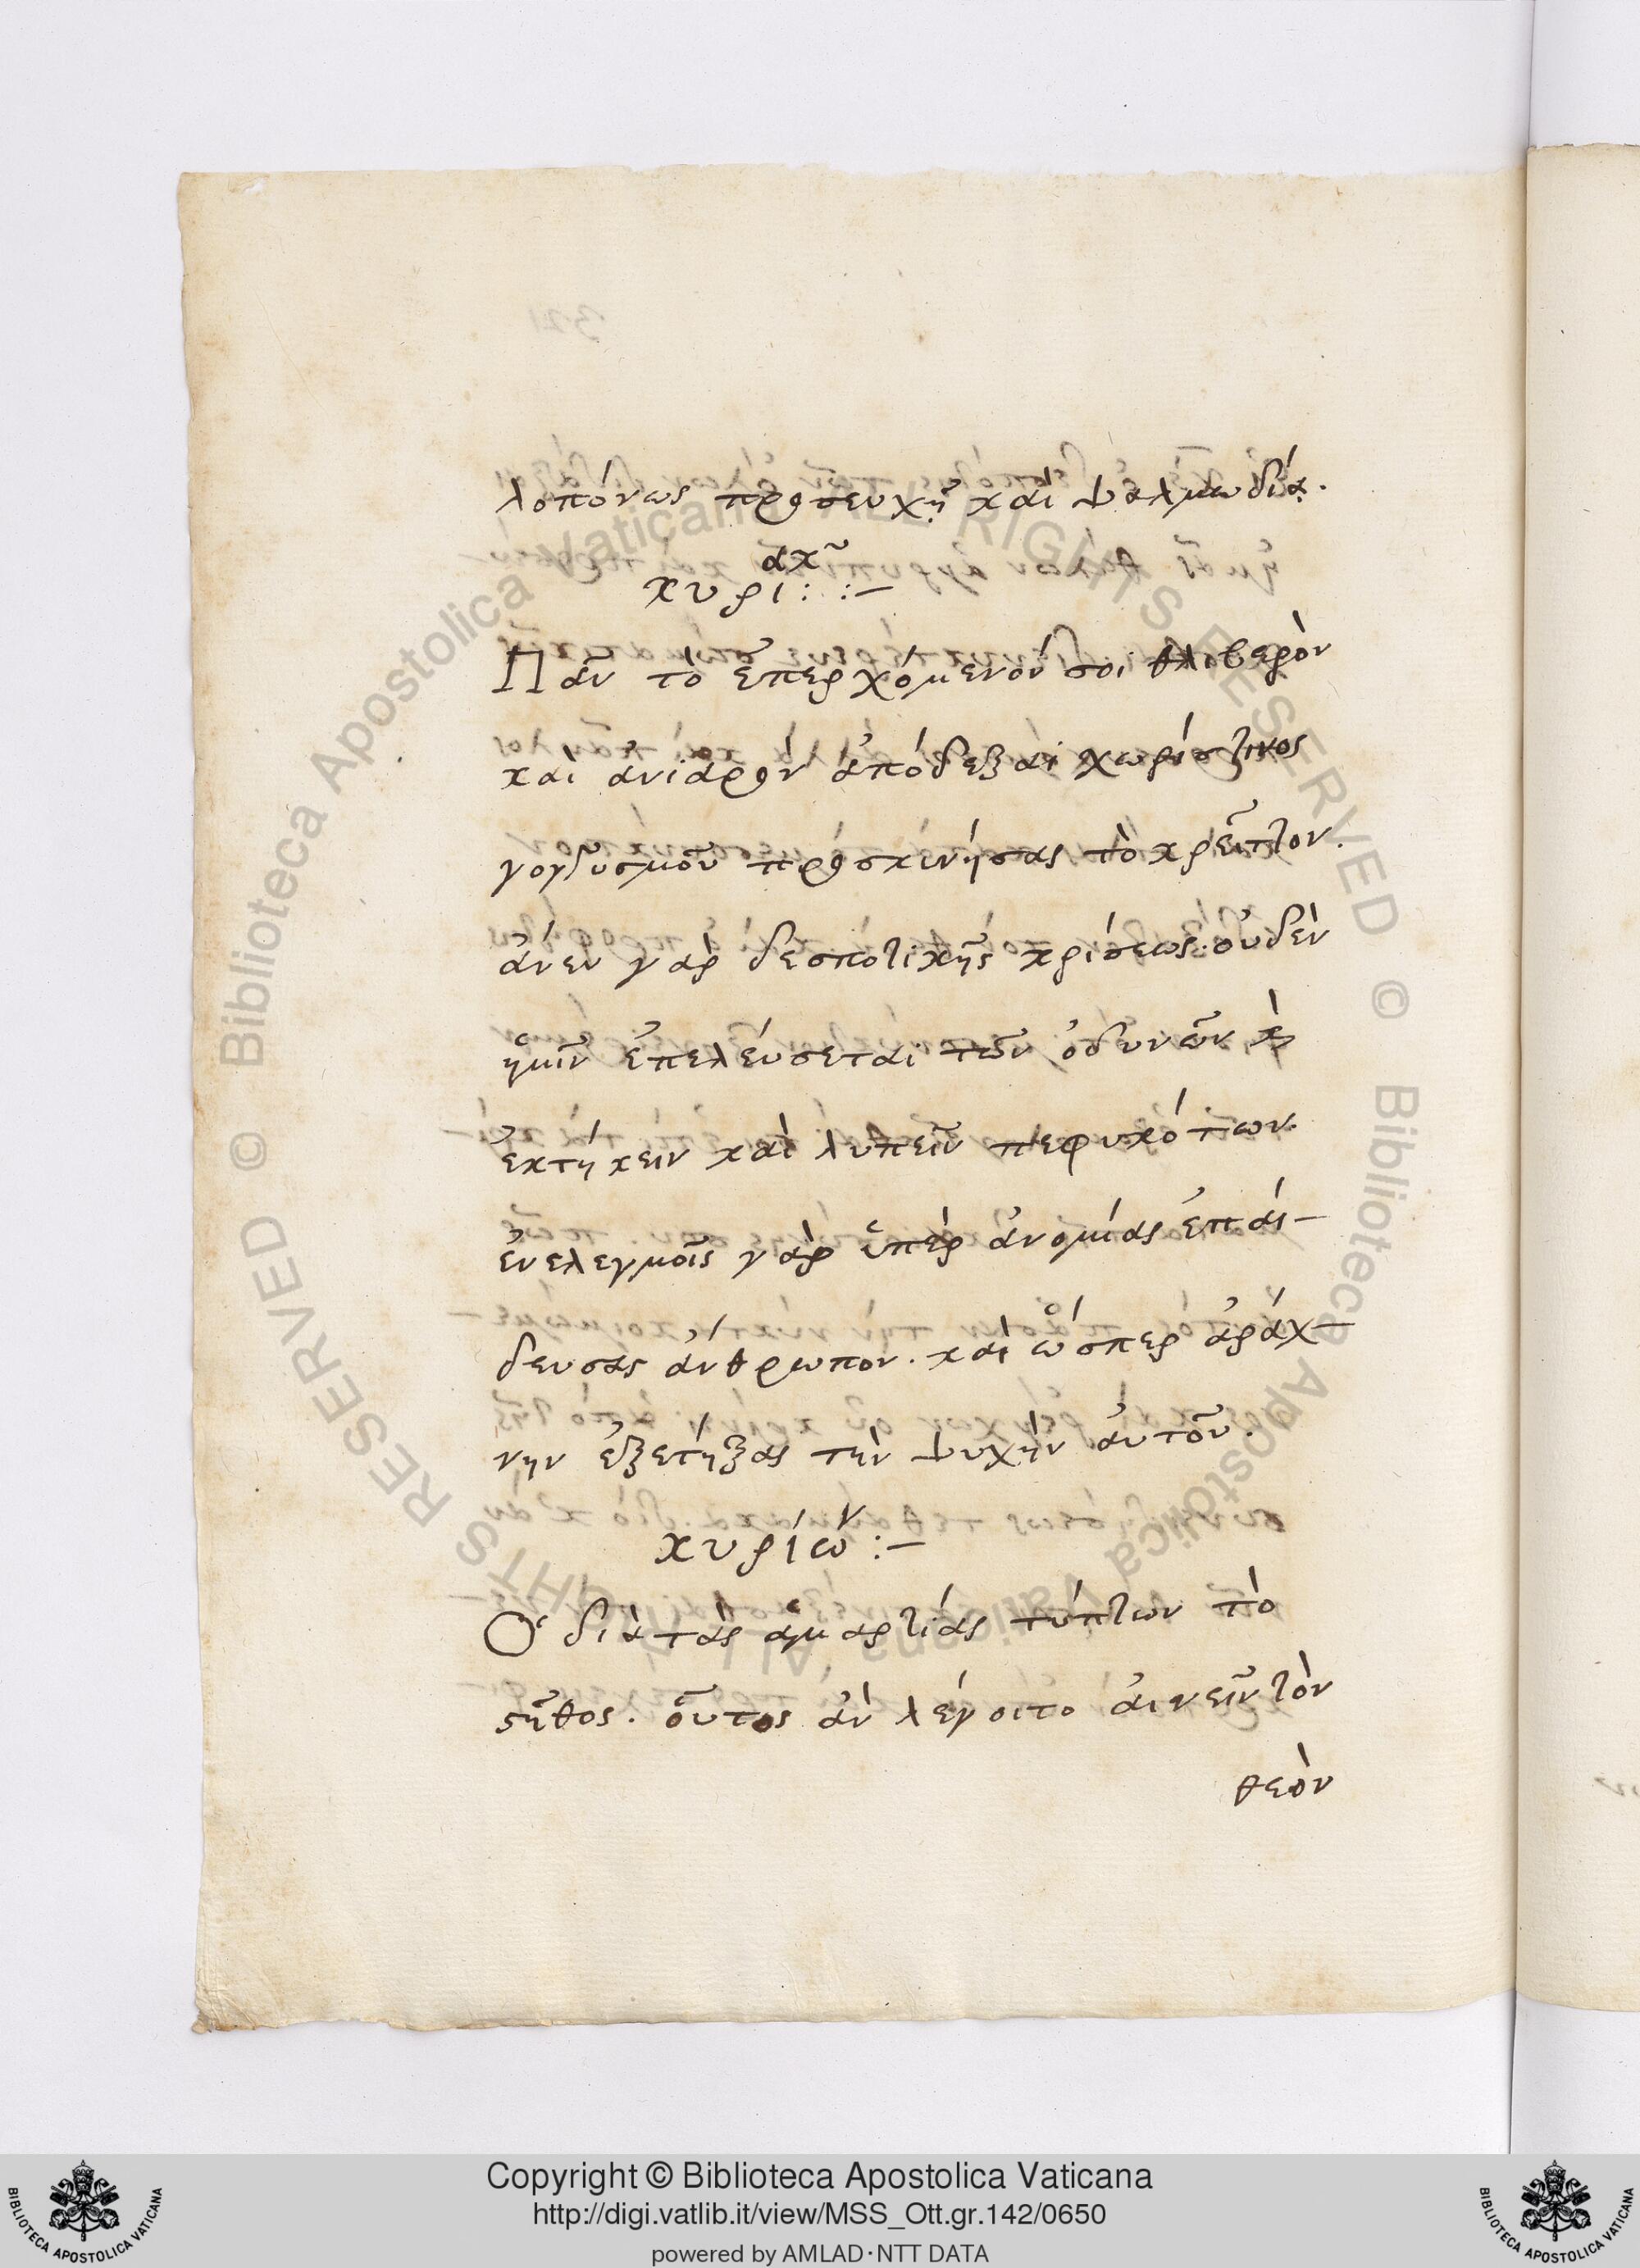 λοπόνως προσευχῇ καὶ ψαλμωδίᾳ.
ακ͂
κυρι: :–
Πᾶν τὸ ἐπερχόμενόν σοι θλιβερὸν
καὶ ἀνιαρὸν ἀπόδεξαι χωρίς τινος
γογγυσμοῦ προσκινήσας τὸ κρεῖττον.
ἄνευ γὰρ δεσποτικῆς κρίσεως οὐδὲν
ἡμῖν ἐπελεύσεται τῶν ὀδυνᾶν κ̀
ἐκτήκειν καὶ λυπεῖν πεφυκότων.
ἐν ελεγμοῖς γὰρ ὑπὲρ ἀνομίας ἐπαί–
δευσας ἄνθρωπον. καὶ ὥσπερ ἀράχ–
νην ἐξέτηξας τὴν ψυχὴν ἀυτοῦ.
κυρίων :–
Ὁ διὰ τὰς ἁμαρτίας τύπτων τὸ
στῆθος. οὗτος ἀν λέγοιτο ἀινεῖν τὸν
θεὸν
Biblioteca Apostolica Vaticana ALL RIGHTS RESERVED © Biblioteca Apostolica Vaticana ALL RIGHTS RESERVED ©
Copyright © Biblioteca Apostolica Vaticana
http://digi.vatlib.it/view/MSS_Ott.gr.142/0650
powered by AMLAD·NTT DATA
BIBLIOTECA APOSTOLICA VATICANA
BIBLIOTECA APOSTOLICA VATICANA